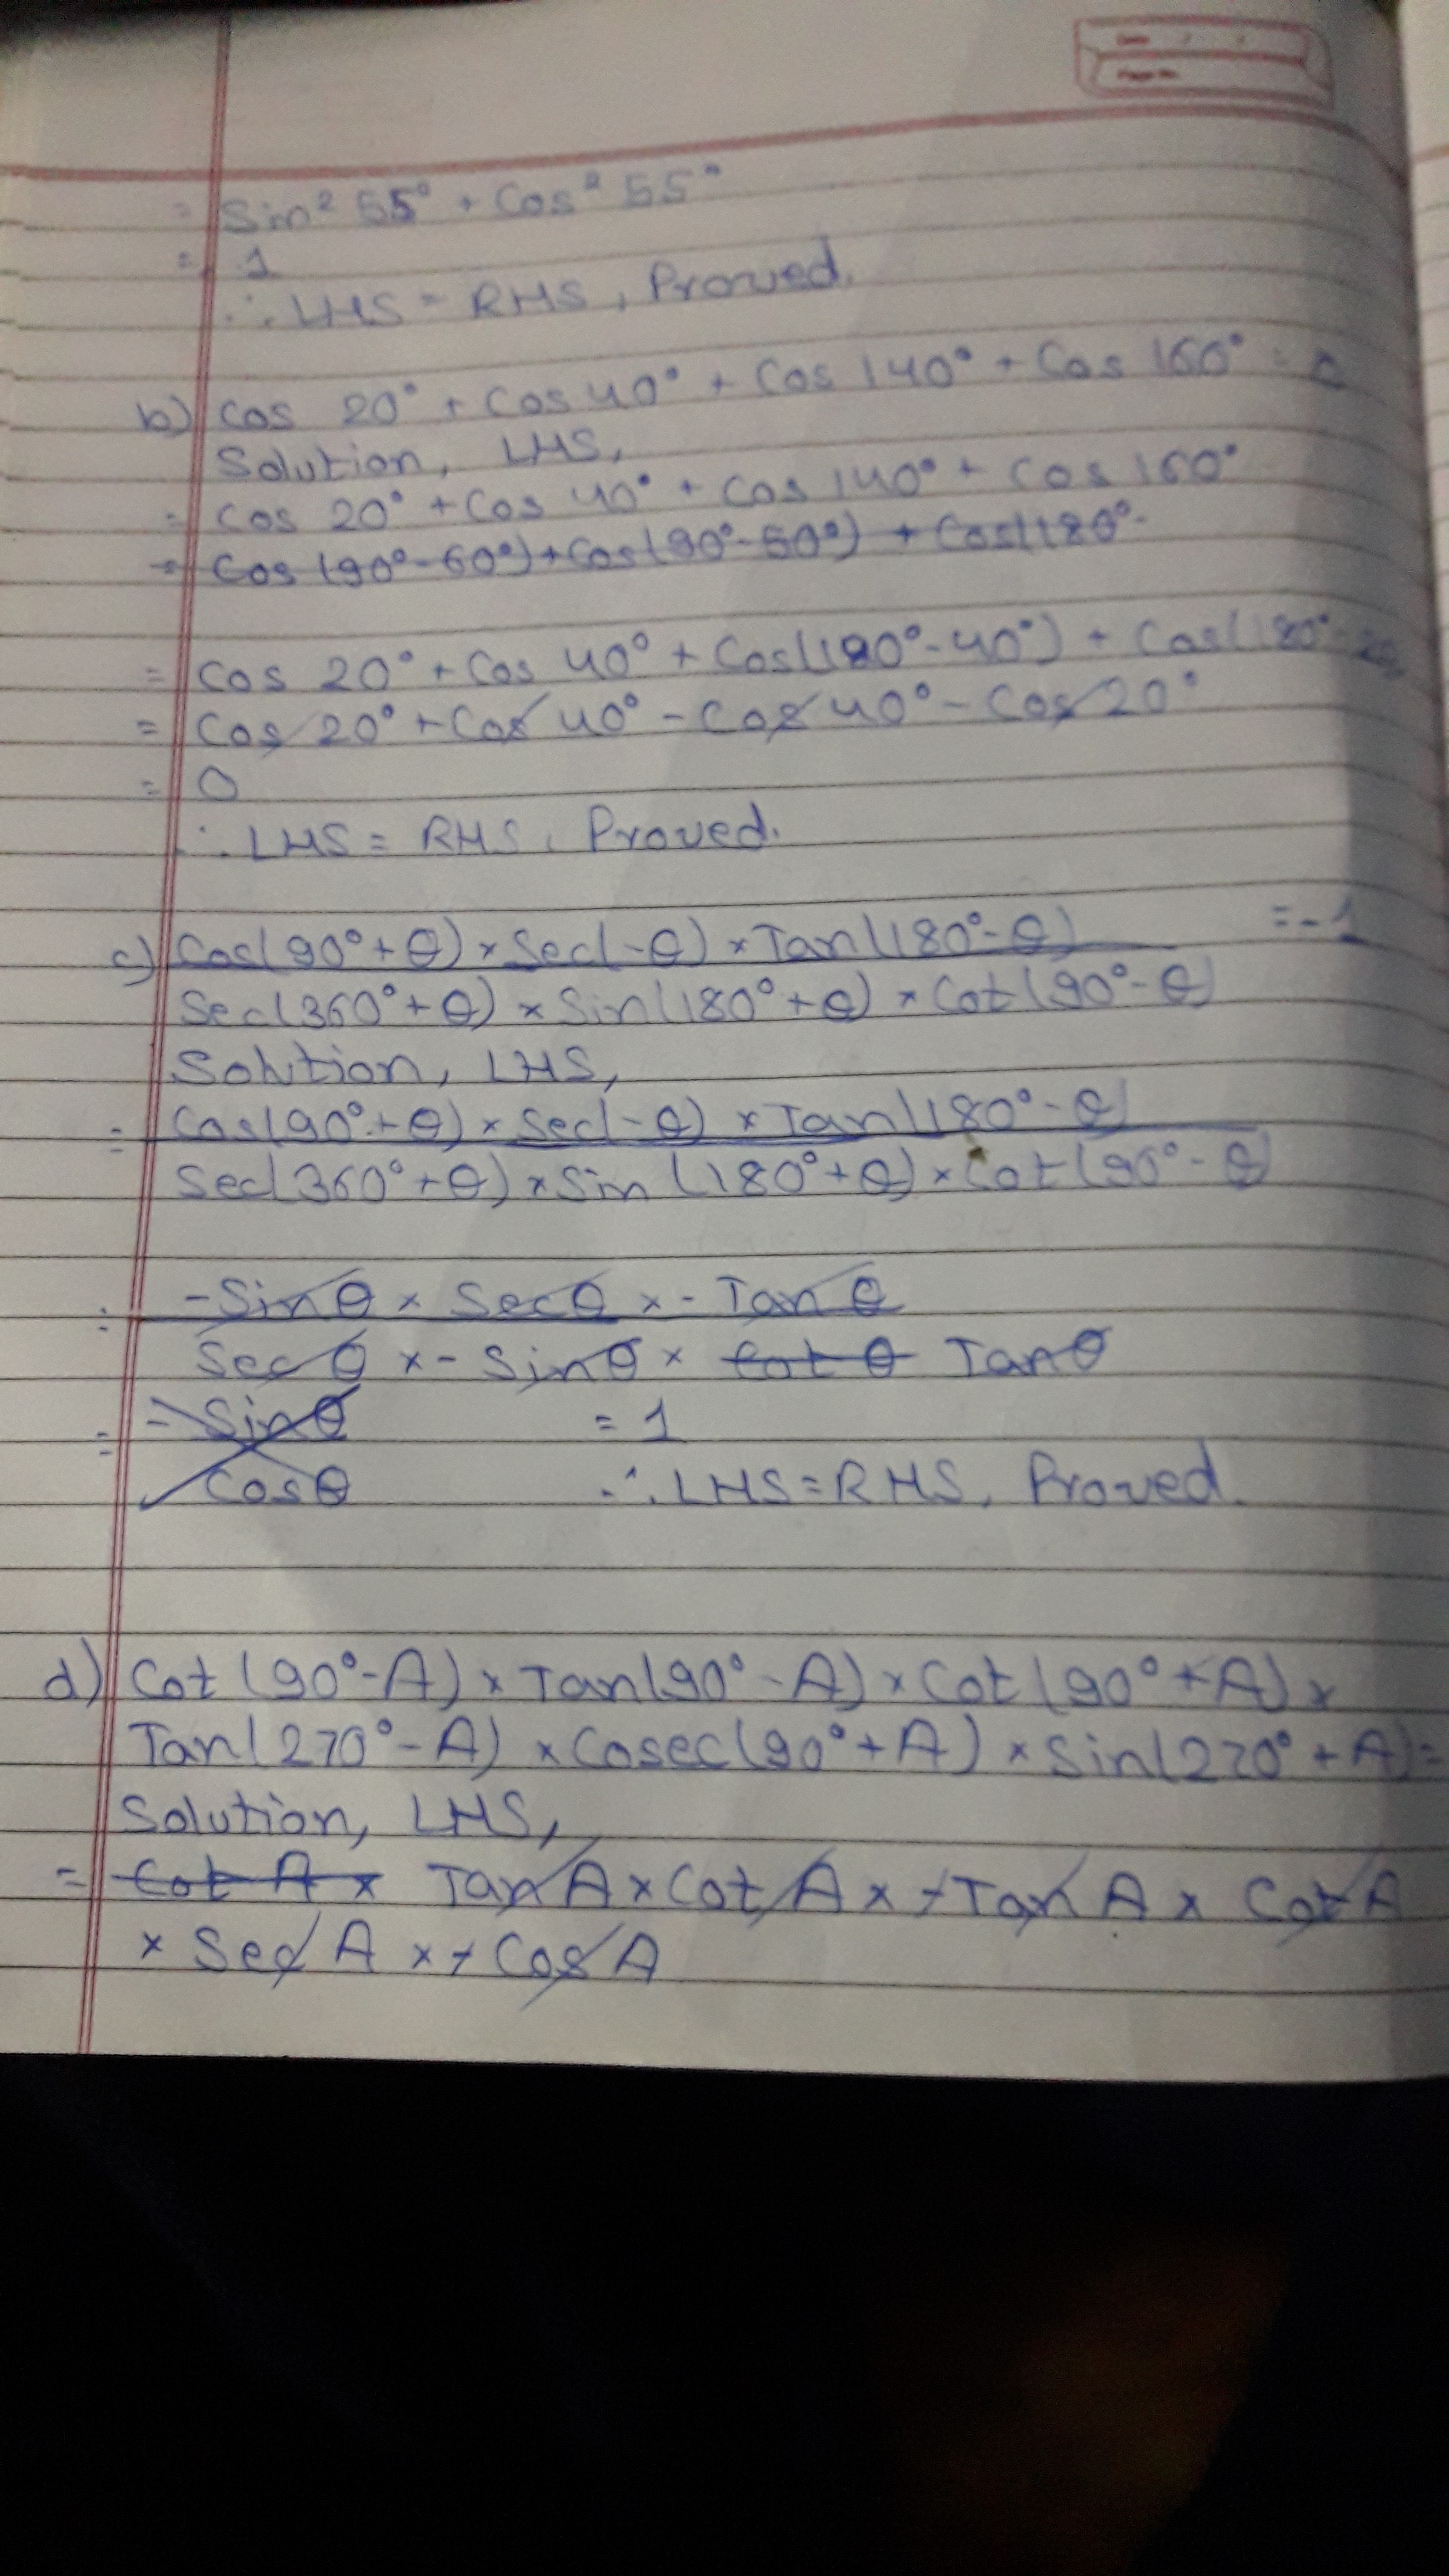 Date / /
Page No.
= Sin² 55° + Cos² 55°
= 1
∴ LHS = RHS, Proved.
b) Cos 20° + Cos 40° + Cos 140° + Cos 160° = 0
Solution, LHS,
= Cos 20° + Cos 40° + Cos 140° + Cos 160°
= Cos (90°-60°) + Cos(90°-50°) + Cos(180°-
= Cos 20° + Cos 40° + Cos(180°-40°) + Cos(180°-20
= Cos 20° + Cos 40° - Cos 40° - Cos 20°
= 0
∴ LHS = RHS, Proved.
c) Cos(90°+θ) × Sec(-θ) × Tan(180°-θ) = -1
Sec(360°+θ) × Sin(180°+θ) × Cot(90°-θ)
Solution, LHS,
= Cos(90°+θ) × Sec(-θ) × Tan(180°-θ)
Sec(360°+θ) × Sin (180°+θ) × Cot (90°-θ)
= -Sinθ × Secθ × - Tan θ
Sec θ × - Sinθ × Cot θ Tanθ
= - Sinθ = 1
Cosθ ∴ LHS = RHS, Proved.
d) Cot (90°-A) × Tan(90°-A) × Cot (90°+A) ×
Tan(270°-A) × Cosec(90°+A) × Sin(270°+A) =
Solution, LHS,
= Cot A × Tan A × Cot A × - Tan A × Cot A
× Sec A × - Cos A